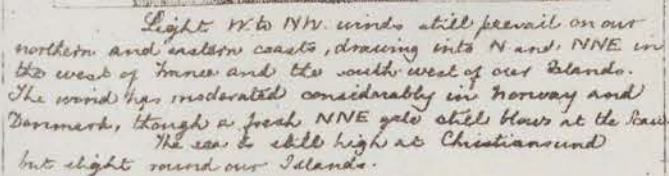 Light W. to NW. winds still prevail on our
northern and eastern coasts, drawing into N and NNE in
the west of France and the south west of our Islands.
The wind has moderated considerably in Norway and
Denmark, though a fresh NNE gale still blows at the Scaw
The sea is still high at Christiansund
but slight round our Islands.